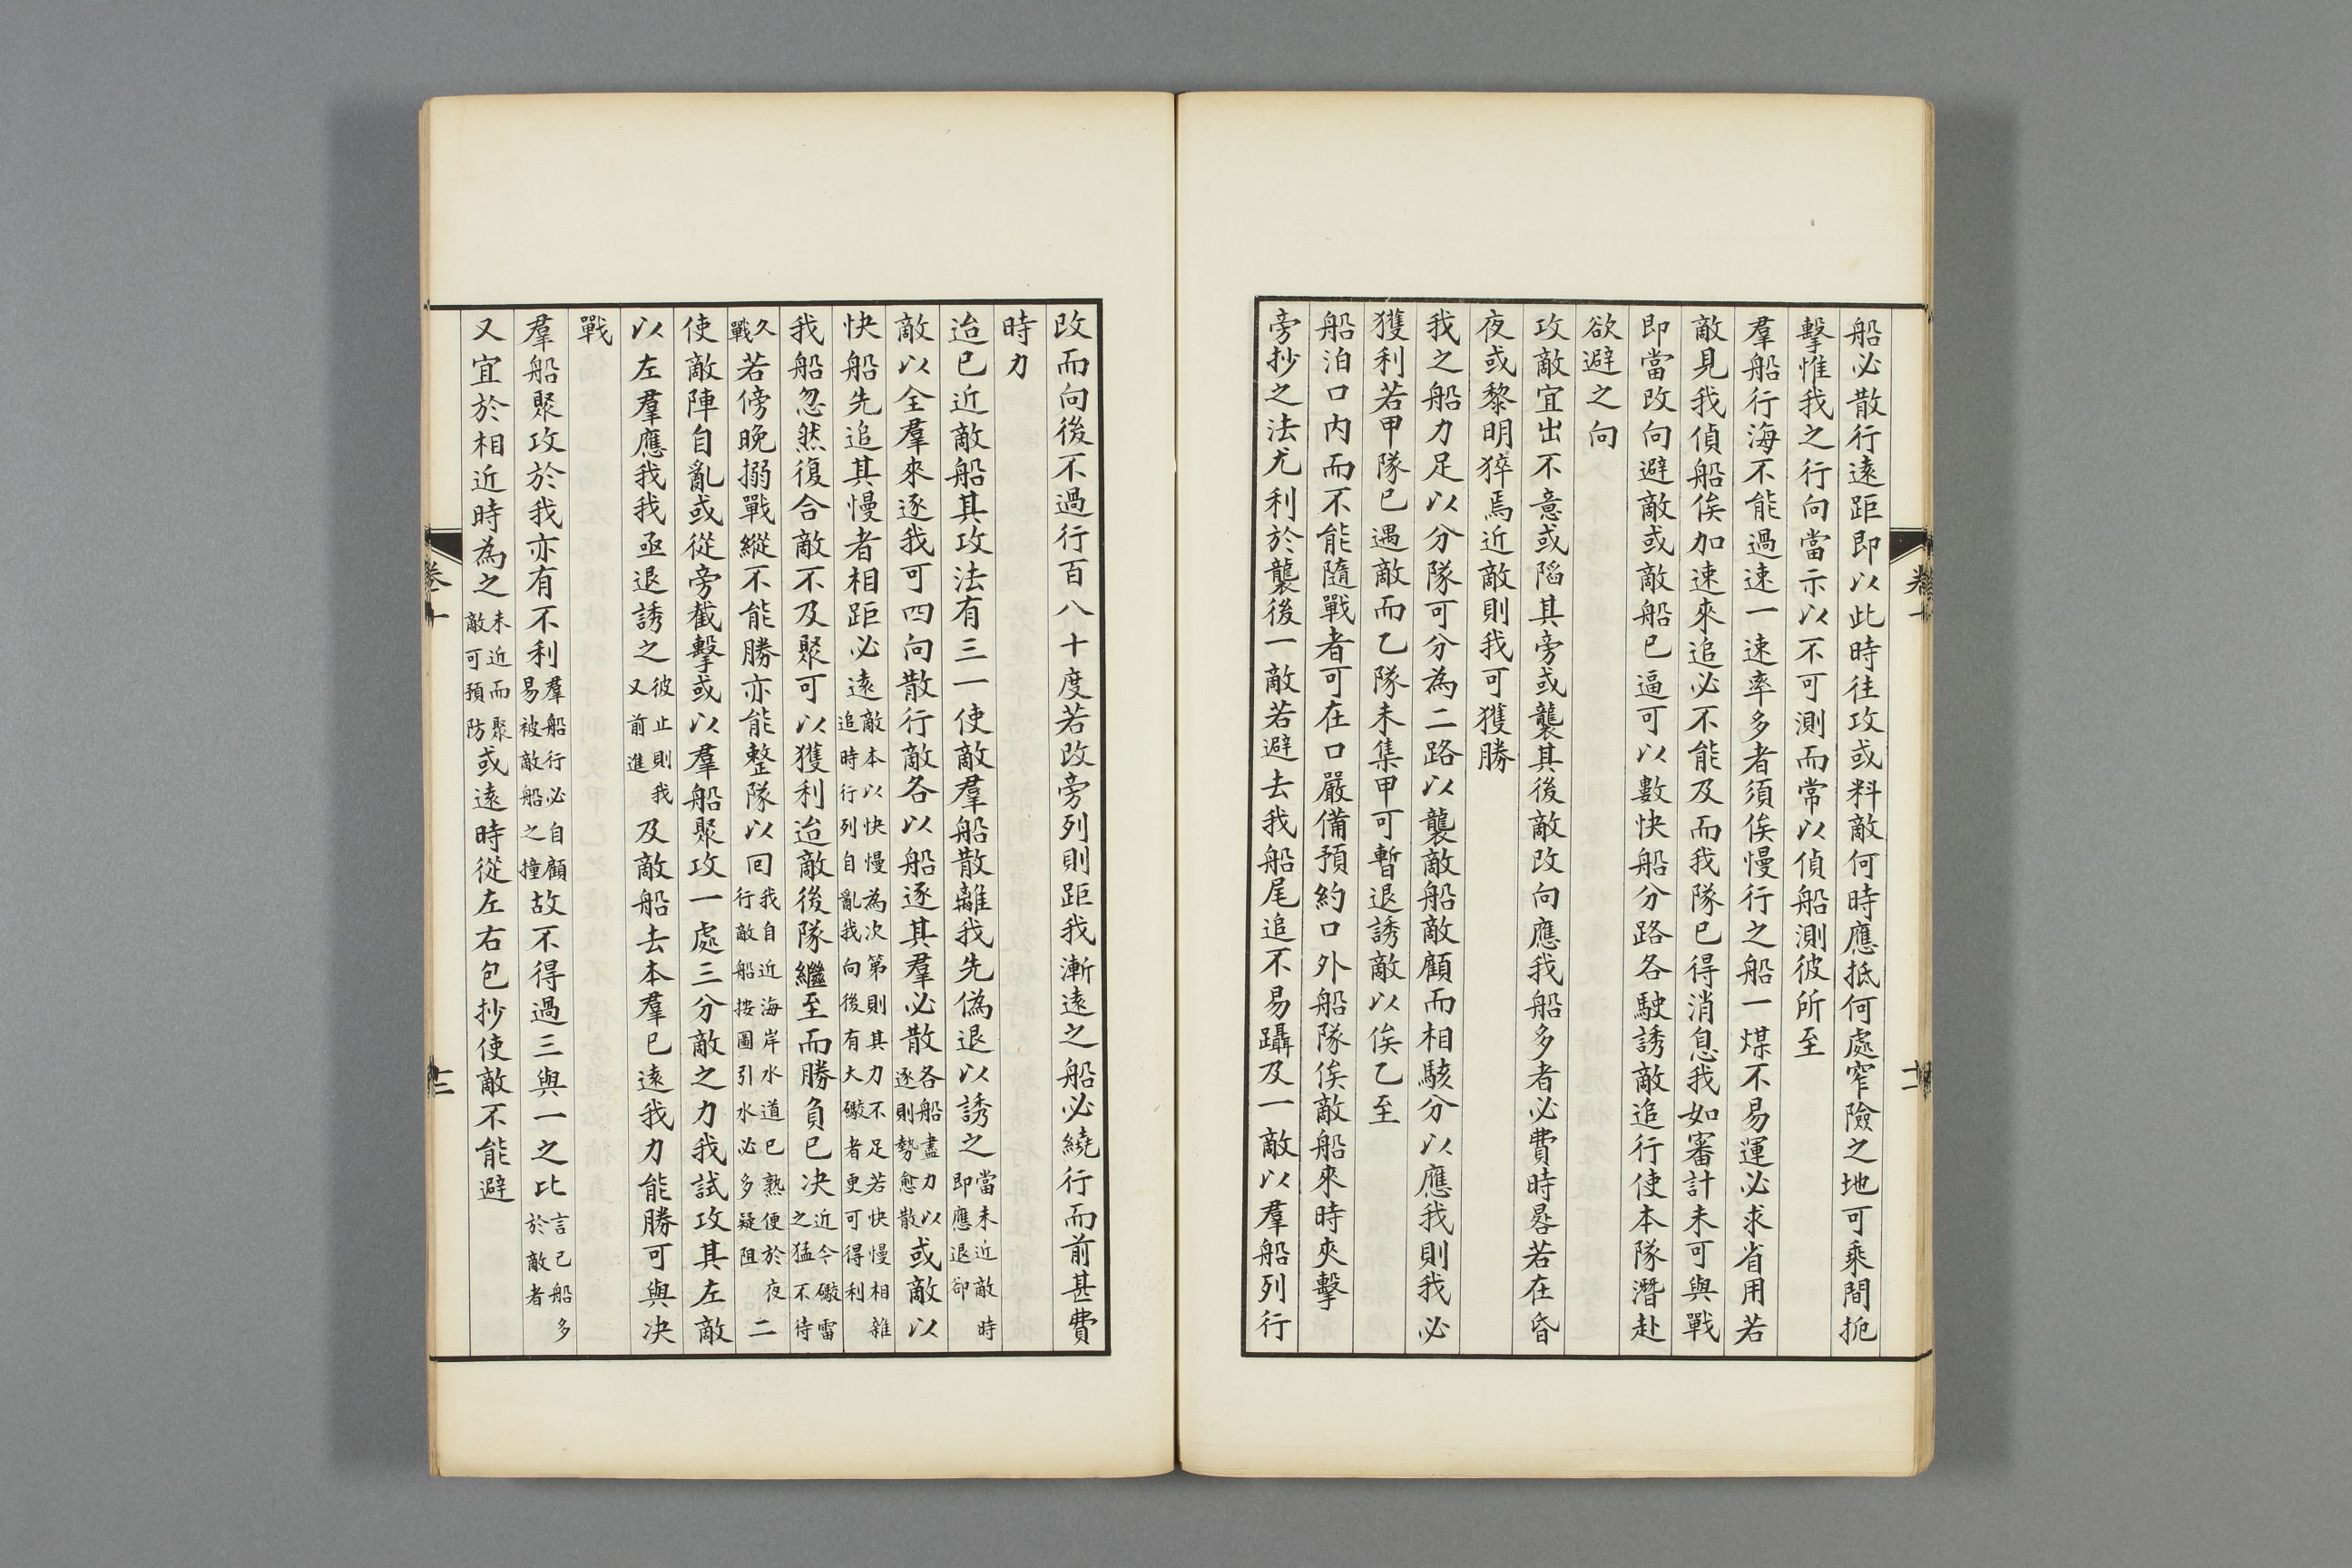 船必散行遠距即以此時往攻或料敵何時應抵何處窄險之地可乘間扼
擊惟我之行向當示以不可測而常以偵船測彼所至
羣船行海不能過速一速率多者須俟慢行之船一煤不易運必求省用若
敵見我偵船俟加速來追必不能及而我隊已得消息我如審計未可與戰
即當改向避敵或敵船已逼可以數快船分路各駛誘敵追行使本隊潛赴
欲避之向
攻敵宜出不意或陷其旁或襲其後敵改向應我船多者必費時晷若在昏
夜或黎明猝焉近敵則我可獲勝
我之船力足以分隊可分為二路以襲敵船敵顧而相駭分以應我則我必
獲利若甲隊已遇敵而乙隊未集甲可暫退誘敵以俟乙至
船泊口內而不能隨戰者可在口嚴備預約口外船隊俟敵船來時夾擊
旁抄之法尤利於襲後一敵若避去我船尾追不易躡及一敵以羣船列行
改而向後不過行百八十度若改旁列則距我漸遠之船必繞行而前甚費
時力
迨已近敵船其攻法有三一使敵羣船散離我先偽退以誘之當未近敵時即應退卻
敵以全羣來逐我可四向散行敵各以船逐其羣必散各船盡力以逐則勢愈散或敵以
快船先追其慢者相距必遠敵本以快慢為次第則其力不足若快慢相雜追時行列自亂我向後有大礮者更可得利
我船忽然復合敵不及聚可以獲利迨敵後隊繼至而勝負已决近今礮雷之猛不待
久戰若傍晚搦戰縱不能勝亦能整隊以回我自近海岸水道已熟便於夜行敵船按圖引水必多疑阻二
使敵陣自亂或從旁截擊或以羣船聚攻一處三分敵之力我試攻其左敵
以左羣應我我亟退誘之彼止則我又前進及敵船去本羣已遠我力能勝可與决
戰
羣船聚攻於我亦有不利羣船行必自顧易被敵船之撞故不得過三與一之比言己船多於敵者
又宜於相近時為之未近而聚敵可預防或遠時從左右包抄使敵不能避
卷十
十二